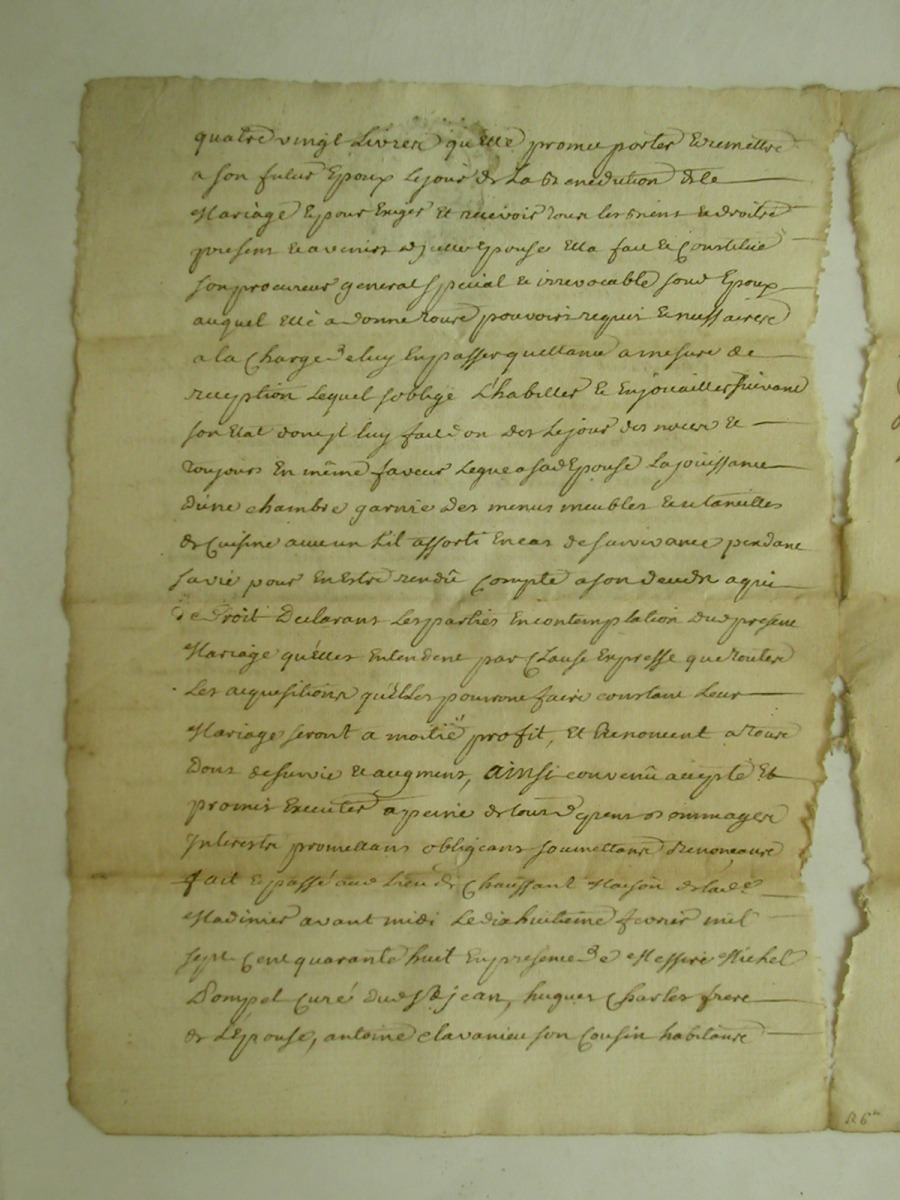 quatre vingt Livres qu'Elle promet porter & remettre
a son futur Epoux Le jour de La Benediction de le
Mariage & pour Exiger Et recevoir tous les biens & droits
presents & avenirs d'jcelle Epouse Ella fait & Constitué
son procureur general special & irrevocable soud Epoux
auquel Elle a donné tous pouvoirs requis & necessaires
a la Charge de luy En passer quittance a mesure de
reception Lequel s'oblige L'habiller & Enjouailler suivant
son Etat dont jl luy fait don des Le jour des noces &
toujours En même faveur Legue a sad Epouse La jouissance
d'une chambre garnie des menus meubles & utancilles
de Cuisine avec un Lit assorti En cas de survivance pendant
sa vie pour En Estre rendû Compte a son deceds a qui
de Droit Declarans Les parties En contemplation dud present
Mariage qu'elles Entendent par Clause Expresse que toutes
Les acquisitions qu'Elles pourront faire constant Leur
Mariage seront a moitié profit, Et Renoncent a tous
Dons de survie & augment, ainsi convenû accepté Et
promis Executer a peine de tous depens dommages
Interests promettans obligeans soumettans Renonceans
fait & passé aud Lieu de Chaussant Maison de lad
Madinier avant midi Le dix huitieme fevrier mil
sept Cent quarante huit En presence de Messire Michel
Pompel Curé dud St jean, hugues Charles frere
de L'Epouse, antoine Clavanieu son Cousin habitans
R 6